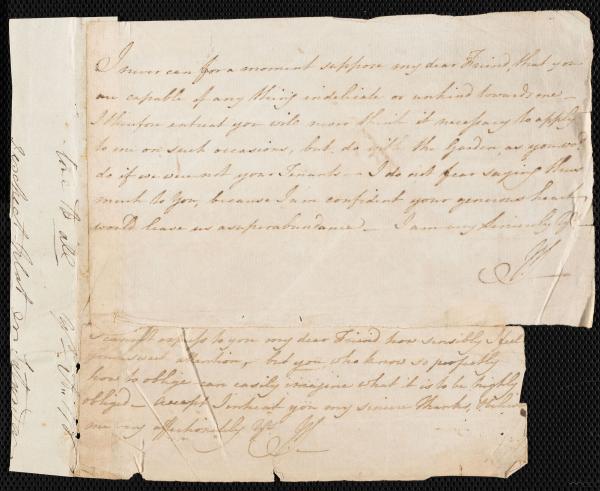 I never can for a moment suppose my dear Friend, that you
are capable of any thing indelicate or unkind towards me –
I therefore entreat you will never think it necessary to apply
to me on such occasions, but do with the Garden, as you would
do if we were not your Tenants – I do not fear saying thus
much to You, because I am confident your generous heart
would leave us a superabundance – I am very sincerely Yrs
I cannot express to you my dear Friend how sensibly I feel
your sweet attention, but you who know so perfectly
how to oblige can easily imagine what it is to be highly
obliged – Accept I entreat you my sincere Thanks,
me very affectionately Yrs